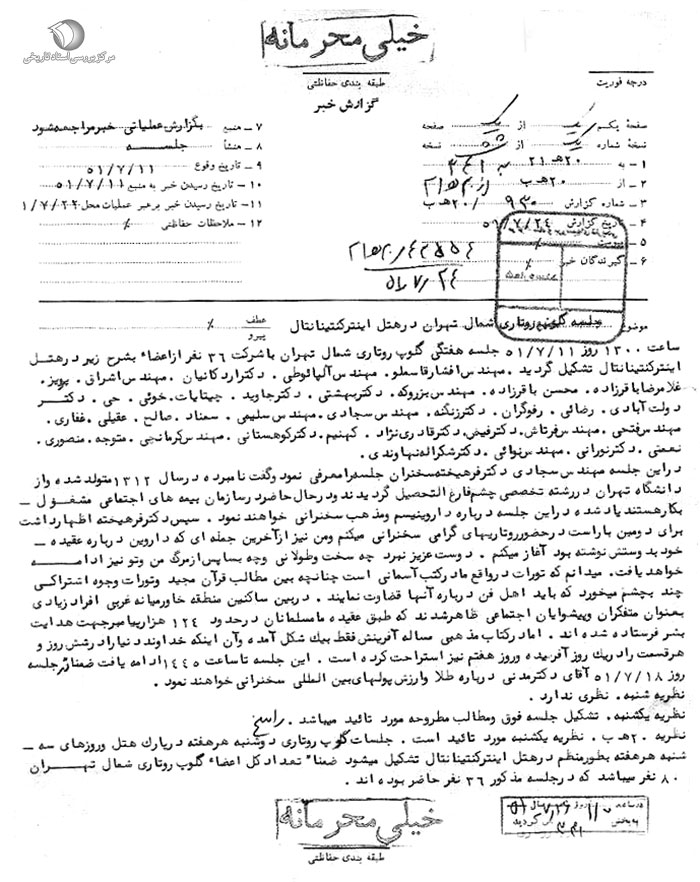 مرکز بررسی اسناد تاریخی
خیلی محرمانه
طبقه بندی حفاظتی
درجه فوریت
گزارش خبر
صفحه یکم از یک صفحه
نسخه شماره یک از نسخه
۱ – به ۲۰هـ ۲۱ ۳۴۱
۲ – از ۲۰هـ ب
۳ – شماره گزارش ۹۳۰ /۲۰هـ ب
۴ – تاریخ گزارش ۵۱/۷/۲۴
۵ –
۶ – گیرندگان خبر
۷ – منبع بگزارش عملیاتی خبر مراجعه شود
۸ – منشأ جلسه
۹ – تاریخ وقوع ۵۱/۷/۱۱
۱۰ – تاریخ رسیدن خبر به منبع ۵۱/۷/۱۱
۱۱ – تاریخ رسیدن خبر برهبر عملیات محل ۱/۷/۲۲
۱۲ – ملاحظات حفاظتی
۵۱/۷/۲۴
موضوع جلسه کلوپ روتاری شمال تهران در هتل اینترکنتینانتال
عطف
پیرو
ساعت ۱۳۰۰ روز ۵۱/۷/۱۱ جلسه هفتگی گلوپ روتاری شمال تهران با شرکت ۳۶ نفر از اعضاء بشرح زیر در هتل
اینترکنتینانتال تشکیل گردید . مهندس افشار قاسملو . مهندس آلپائوطی . دکتر اردکانیان . مهندس اشراق . پرویز .
غلامرضا باقرزاده . محسن باقرزاده . مهندس بزروکه . دکتر بهشتی . دکتر جاوید . چیتایات . خوئی . حی . دکتر
دولت آبادی . رضائی . رفوگران . دکتر زنگنه . مهندس سجادی . مهندس سلیمی . سعناد . صالح . عقیلی . غفاری .
مهندس فتحی . مهندس فرتاش . دکتر فیض . دکتر قادری نژاد . کهنیم . دکتر کوهستانی . مهندس کرمانجی . متوجه . منصوری .
نعمتی . دکتر نورانی . مهندس نوائی . دکتر شکراله نهاوندی .
در این جلسه مهندس سجادی دکتر فرهیخته سخنران جلسه را معرفی نمود و گفت نامبرده در سال ۱۳۱۲ متولد شده و از
دانشگاه تهران در رشته تخصصی چشم فارغ التحصیل گردیدند و در حال حاضر در سازمان بیمه های اجتماعی مشغول –
بکار هستند یاد شده در این جلسه درباره داروینیسم و مذهب سخنرانی خواهند نمود . سپس دکتر فرهیخته اظهار داشت
برای دومین بار است در حضور روتاریهای گرامی سخنرانی میکنم و من نیز از آخرین جمله ای که داروین درباره عقیده –
خود بدوستش نوشته بود آغاز میکنم . دوست عزیز نبرد چه سخت و طولانی و چه بسا پس از مرگ من و تو نیز ادامه
خواهد یافت . میدانم که تورات در واقع مادر کتب آسمانی است چنانچه بین مطالب قرآن مجید و تورات وجوه اشتراکی
چند بچشم میخورد که باید اهل فن درباره آنها قضاوت نمایند . در بین ساکنین منطقه خاورمیانه غربی افراد زیادی
بعنوان متفکران و پیشوایان اجتماعی ظاهر شدند که طبق عقیده ما مسلمانان در حدود ۱۲۴ هزار پیامبر جهت هدایت
بشر فرستاده شده اند . اما در کتاب مذهبی مساله آفرینش فقط بیک شکل آمده و آن اینکه خداوند دنیا را در شش روز و
هر قسمت را در یک روز آفریده و روز هفتم نیز استراحت کرده است . این جلسه تا ساعت ۱۴۴۵ ادامه یافت ضمناً در جلسه
روز ۵۱/۷/۱۸ آقای دکتر مدنی درباره طلا و ارزش پولهای بین المللی سخنرانی خواهند نمود .
نظریه شنبه . نظری ندارد .
نظریه یکشنبه . تشکیل جلسه فوق و مطالب مطروحه مورد تائید میباشد . راسخ
نظریه ۲۰هـ ب . نظریه یکشنبه مورد تائید است . جلسات گلوپ روتاری دوشنبه هر هفته در پارک هتل و روزهای سه –
شنبه هر هفته بطور منظم در هتل اینترکنتینانتال تشکیل میشود ضمناً تعداد کل اعضاء گلوپ روتاری شمال تهران
۸۰ نفر میباشد که در جلسه مذکور ۳۶ نفر حاضر بوده اند .
خیلی محرمانه
طبقه بندی حفاظتی